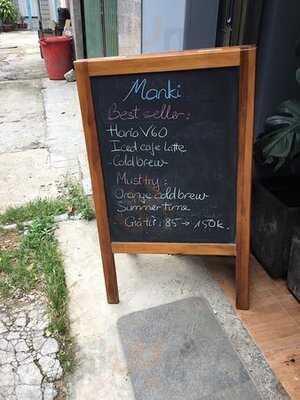 Manki
Best seller:
Hario V60
Iced cafe Latte
Coldbrew
Must try:
Orange cold brew
Summer time
85 → 150k.